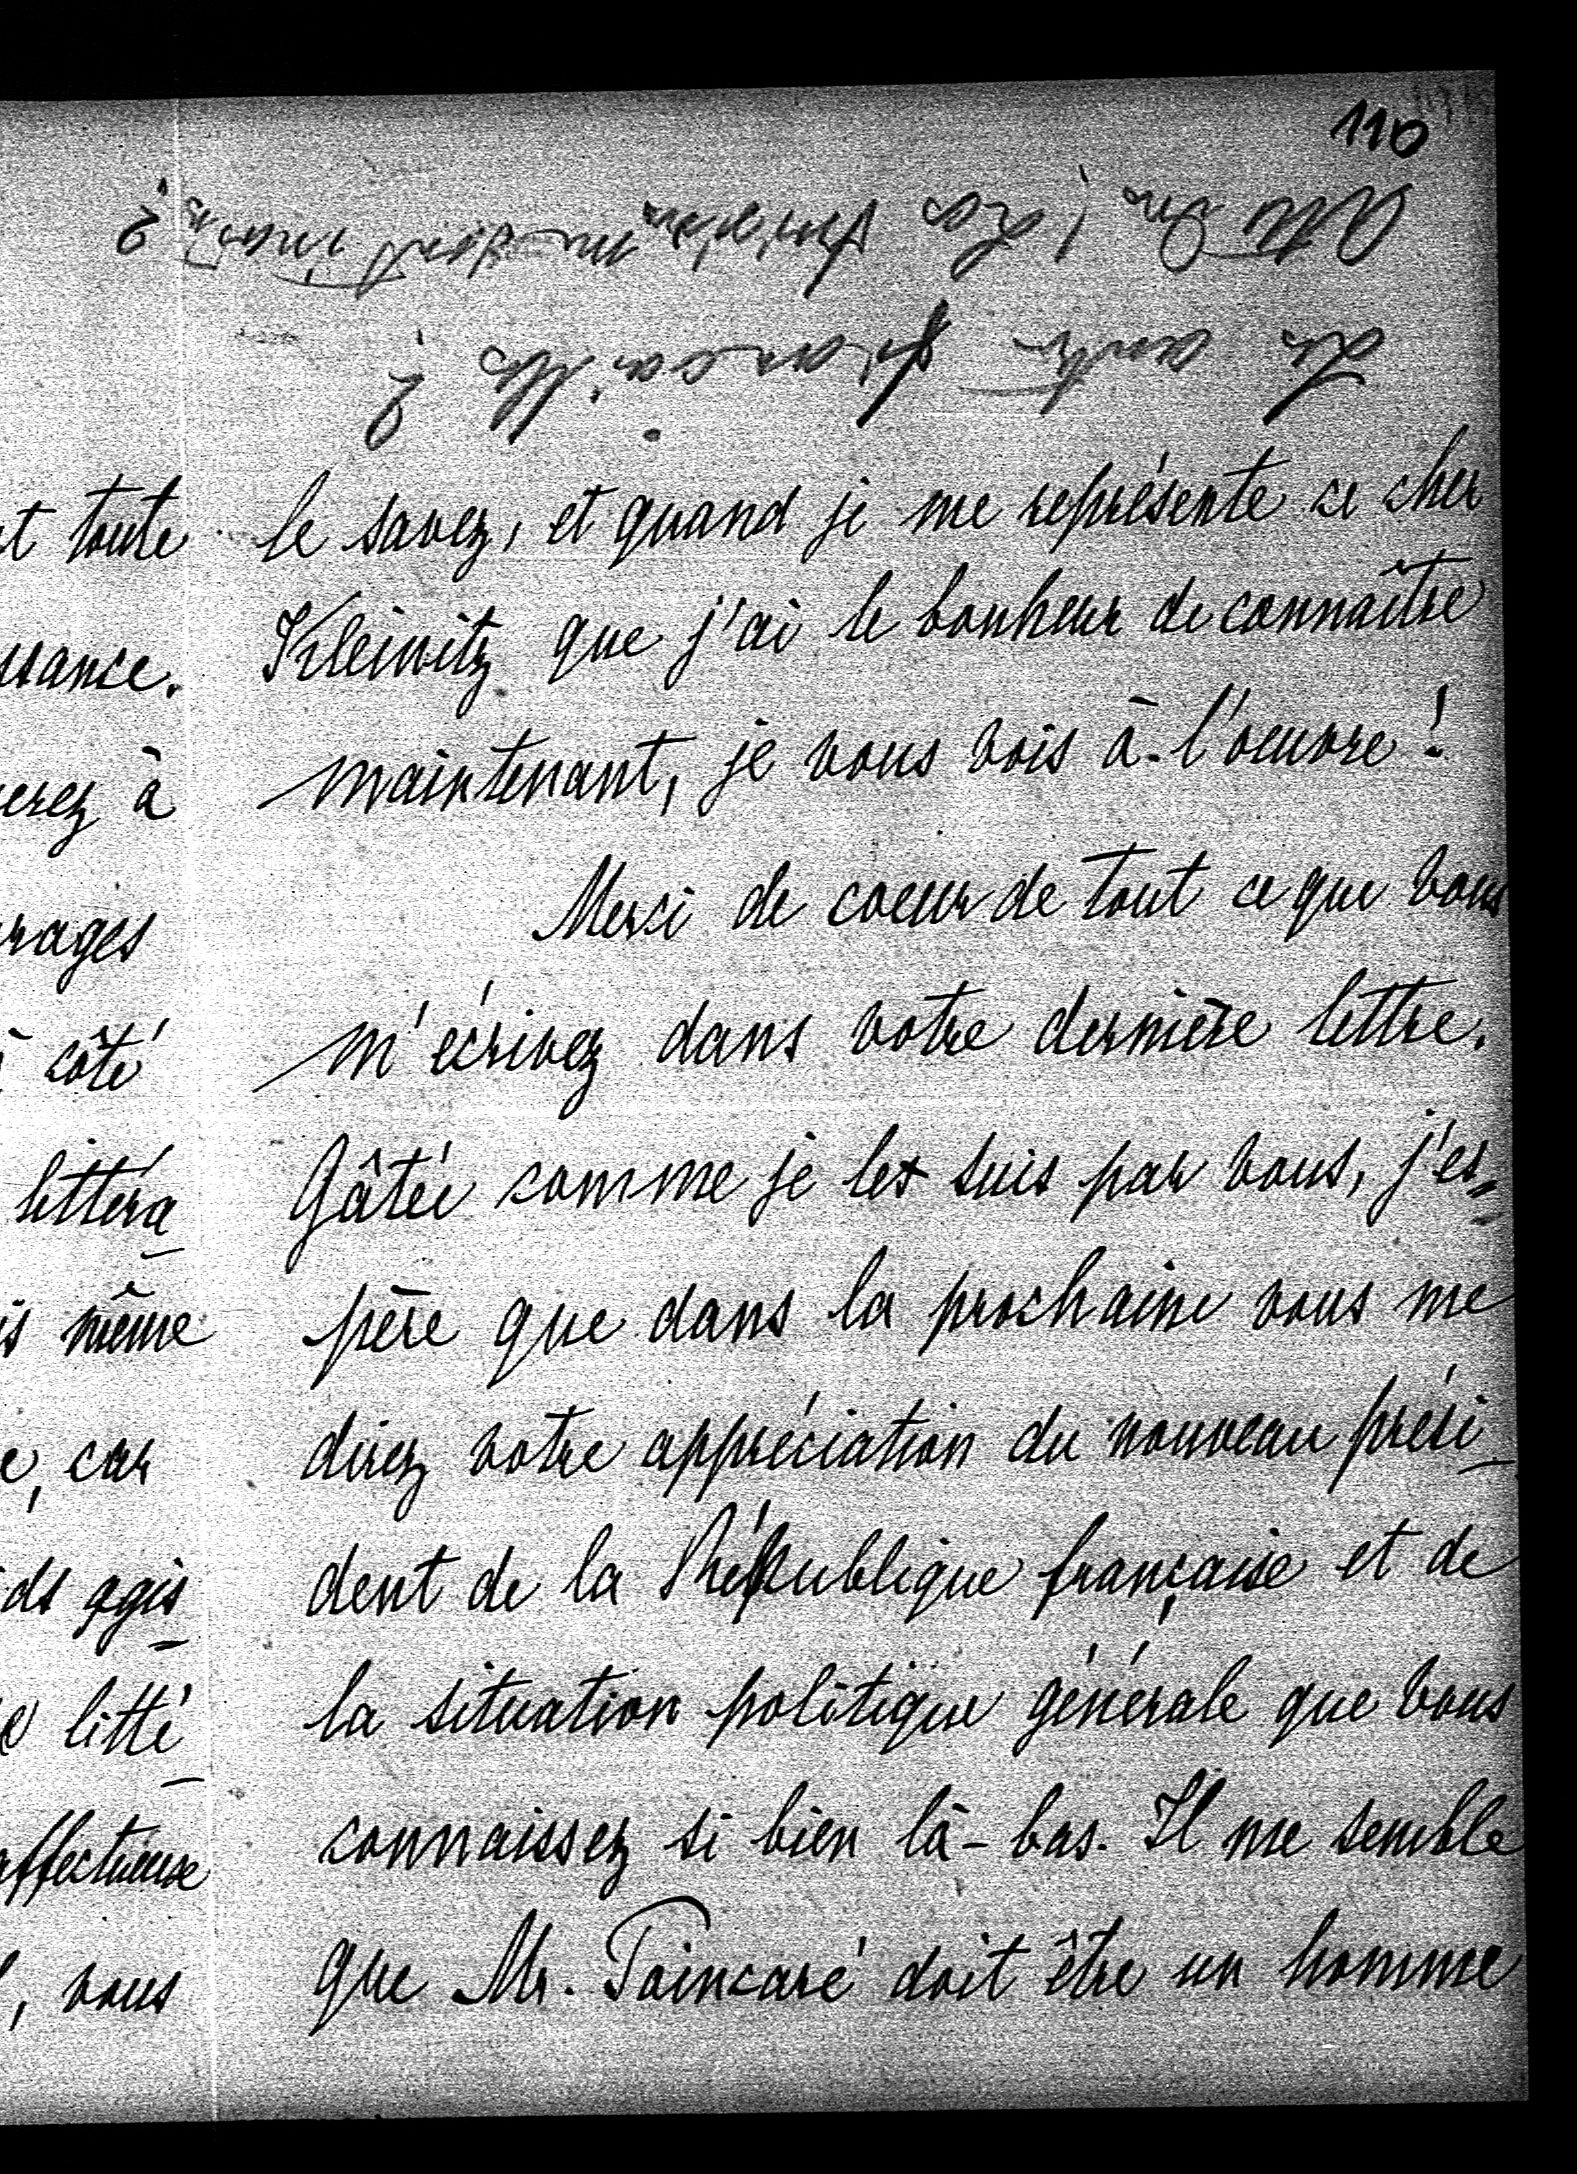 110
le savez, et quand je me représente ce cher
Kleinitz que j'ai le bonheur de connaître
maintenant, je vous vois à l'oeuvre !
Merci de coeur de tout ce que vous
m'écrivez dans votre dernière lettre.
Gâtée comme je les suis par vous, j'es=
père que dans la prochaine vous me
direz votre appréciation du nouveau prési-
dent de la République française et de
la situation politique générale que vous
connaissez si bien là-bas. Il me semble
que Mr. Poincaré doit être un homme
toute
ssance.
erez à
rages
côté
littéra-
même
car
ds agis-
litté-
affectueuse
, vous